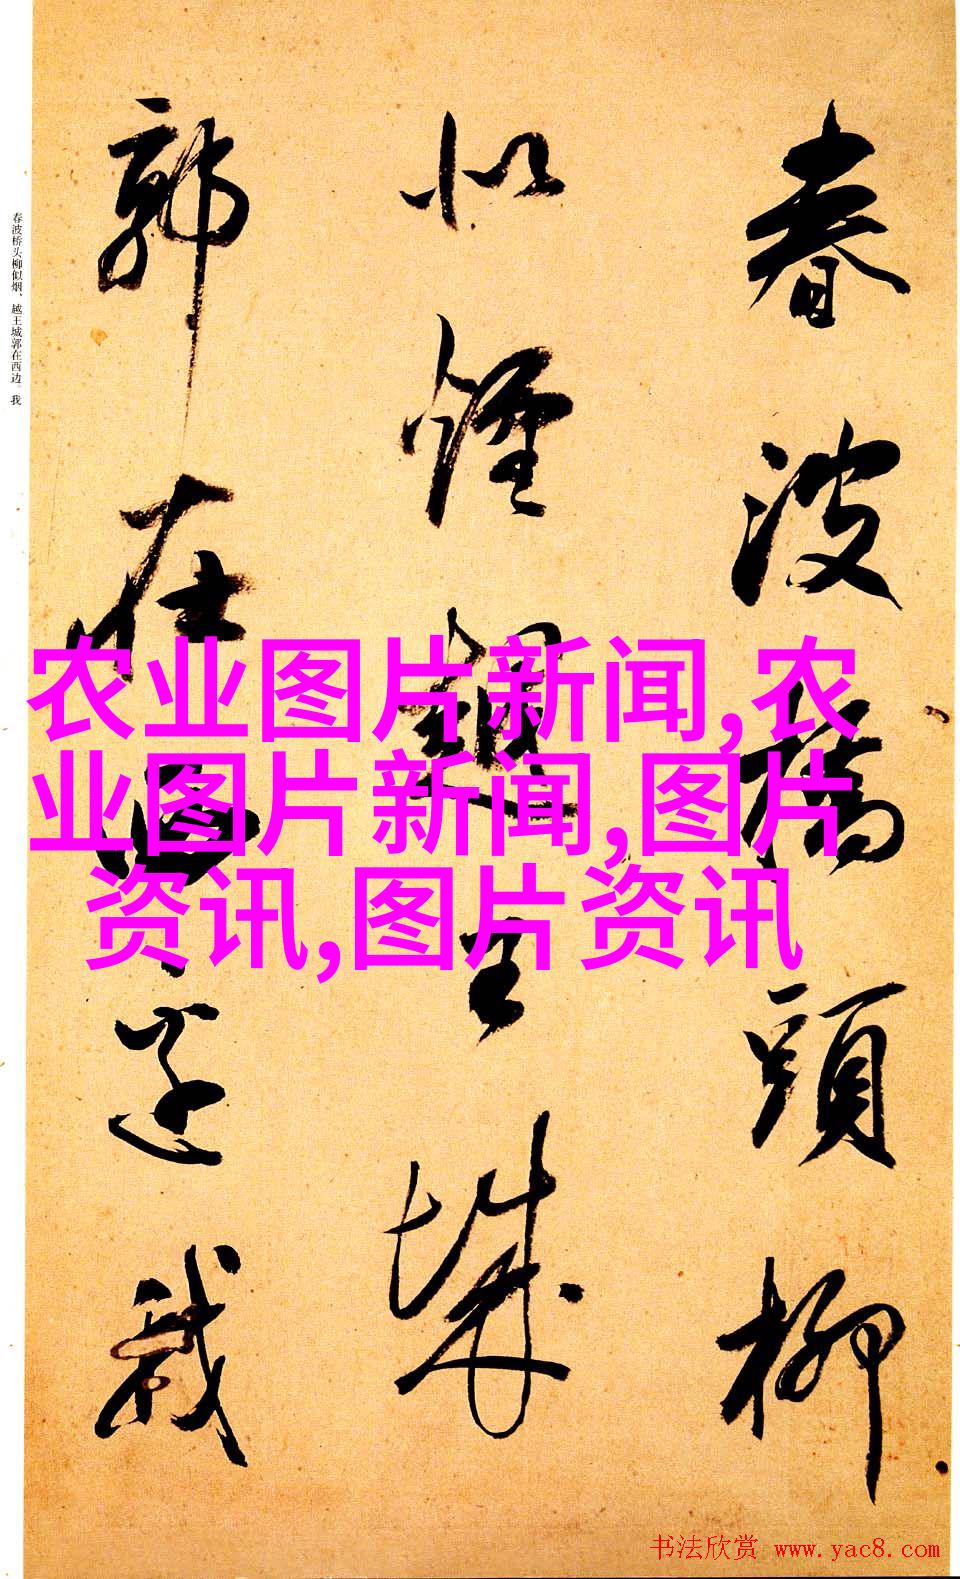 春波橋頭柳
似煙越王城
郭在西邊我
春波桥头柳似烟、越王城郭在西边。我
农业图片新闻,农
业图片新闻,图片
资讯,图片资讯
书法欣赏 www.yac8.com